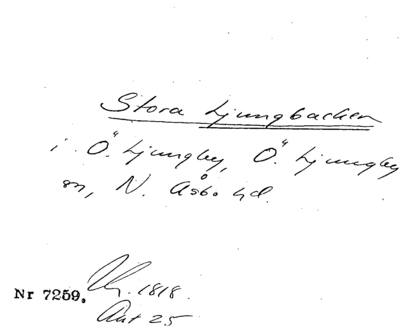 Stora Ljungbacken
i Ö. Ljungby, Ö. Ljungby
sn, N. Åsbo hd.
1818.
Nr 7259.
Akt 25